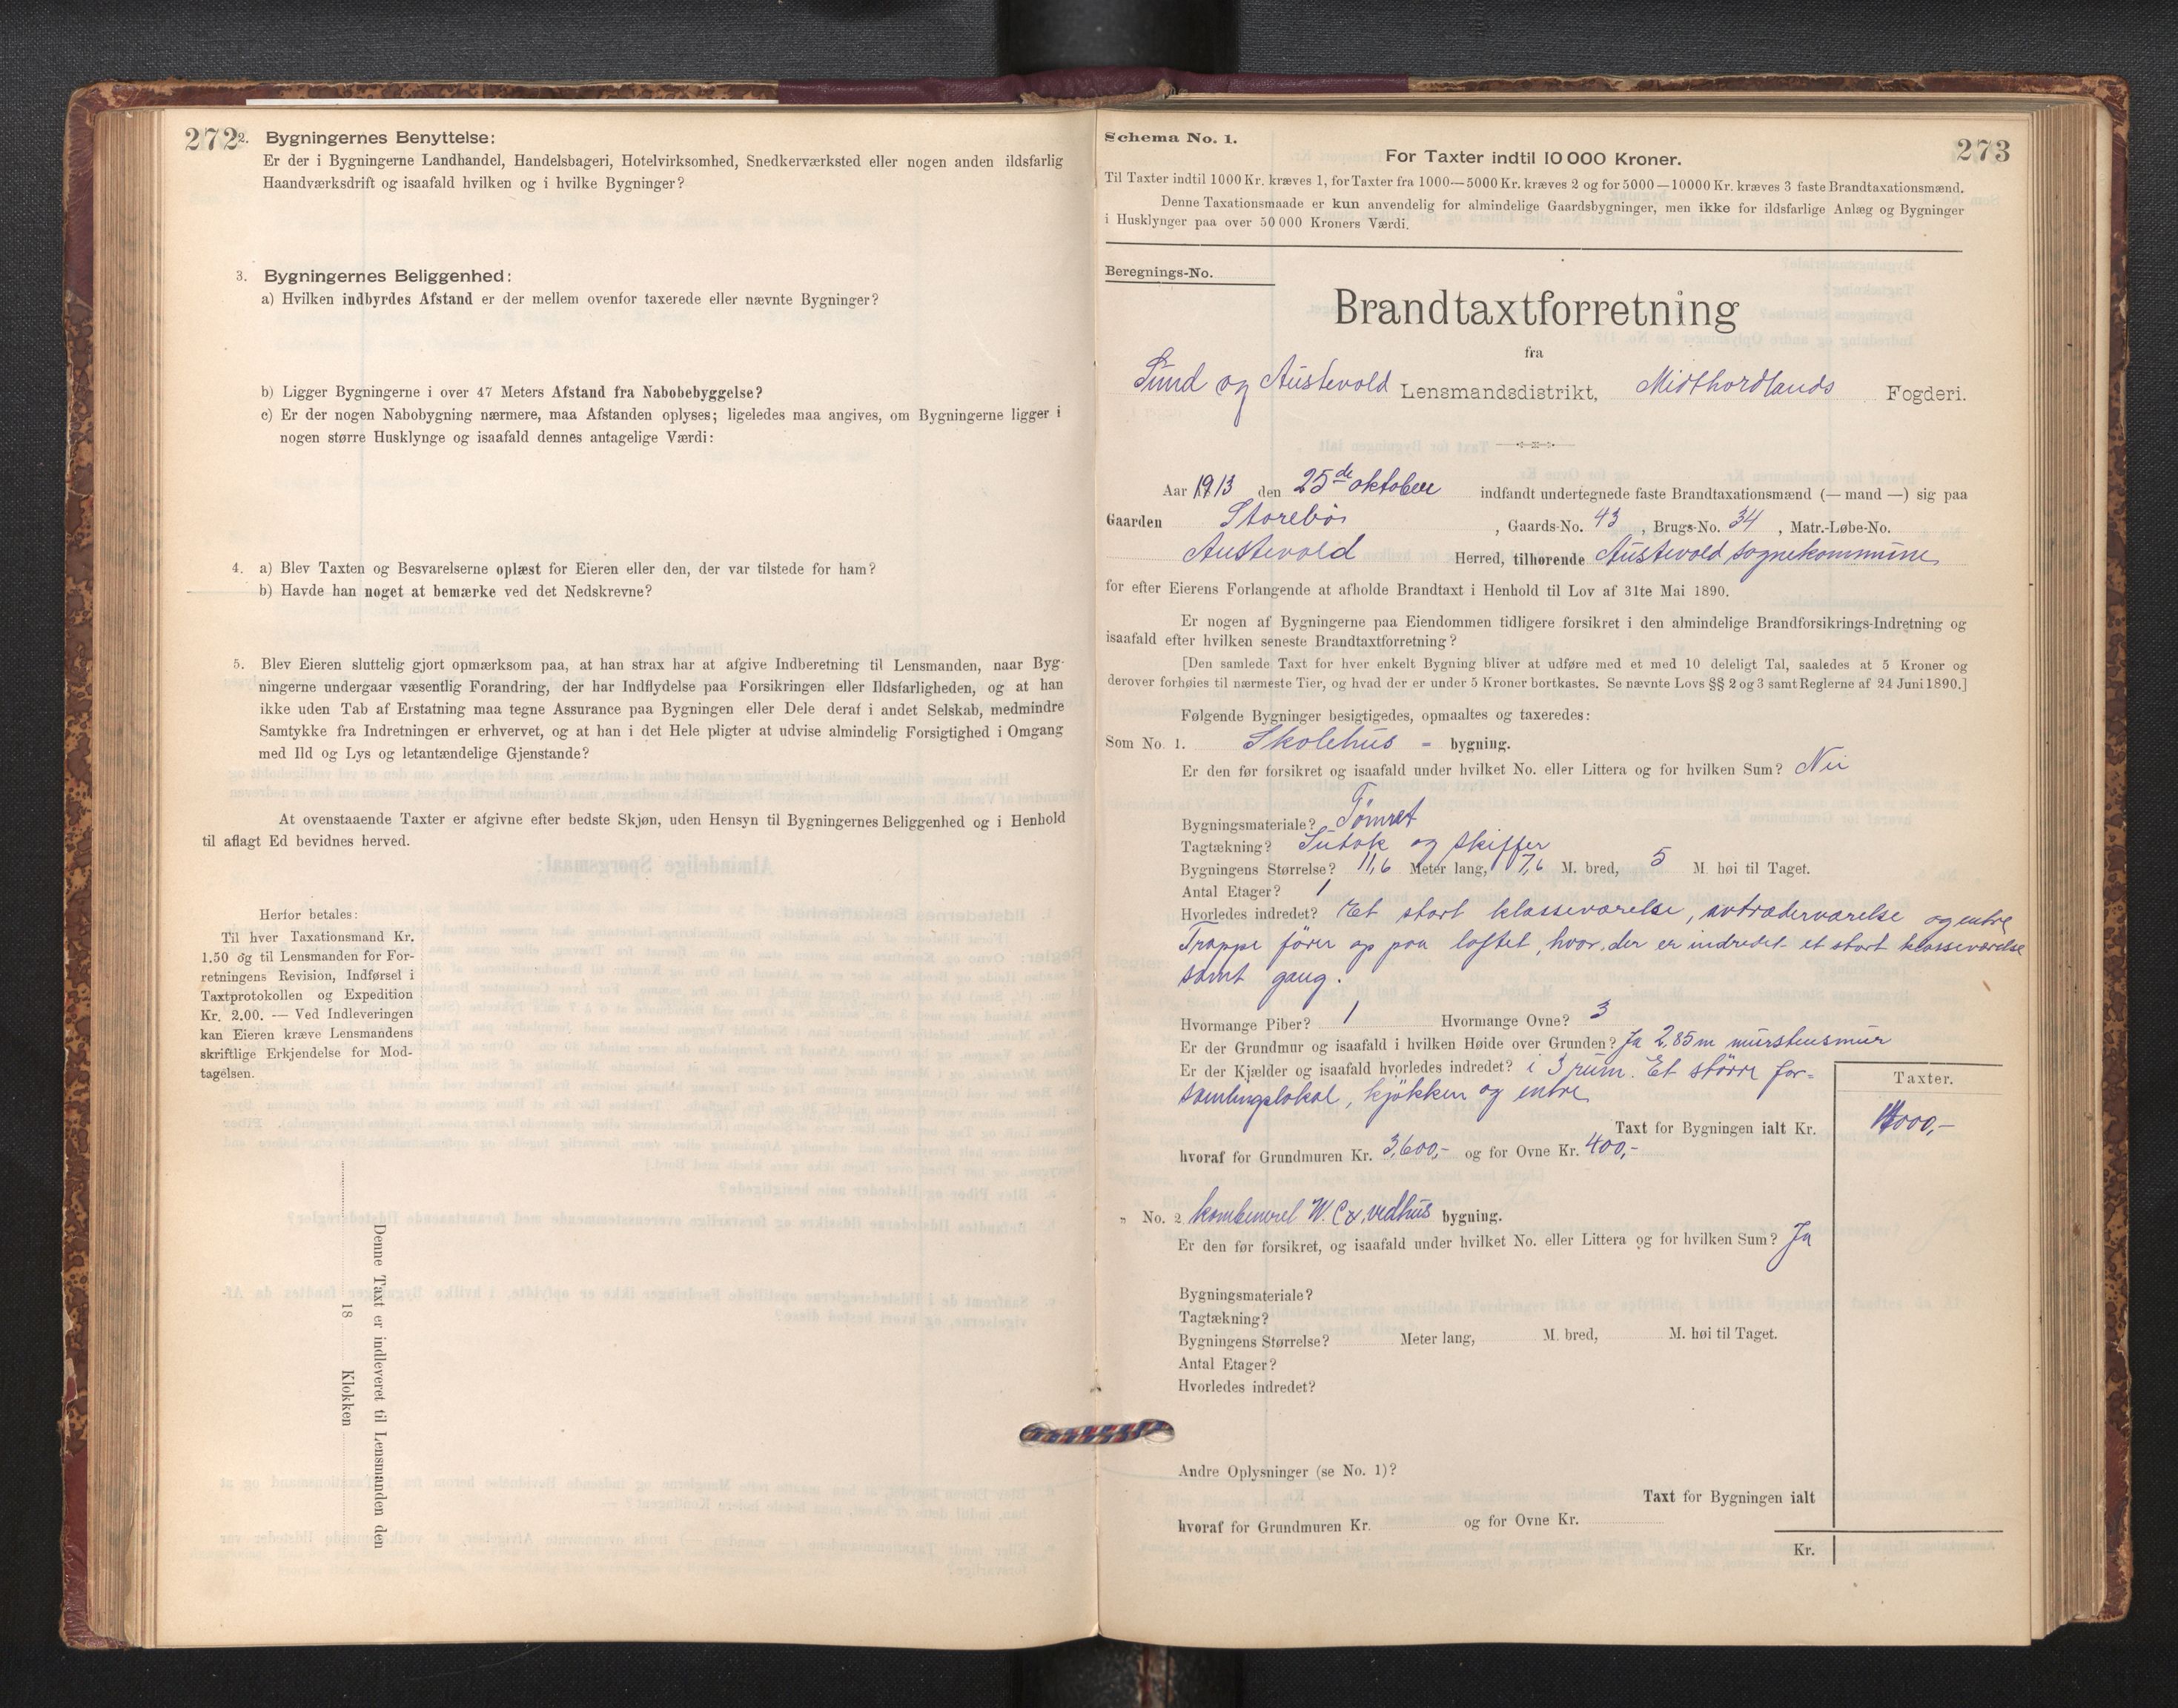 272
2. Bygningernes Benyttelse:
Er der i Bygningerne Landhandel, Handelsbageri, Hotelvirksomhed, Snedkerværksted eller nogen anden ildsfarlig
Haandværksdrift og isaafald hvilken og i hvilke Bygninger?
3. Bygningernes Beliggenhed:
a) Hvilken indbyrdes Afstand er der mellem ovenfor taxerede eller nævnte Bygninger?
b) Ligger Bygningerne i over 47 Meters Afstand fra Nabobebyggelse?
c) Er der nogen Nabobygning nærmere, maa Afstanden oplyses; ligeledes maa angives, om Bygningerne ligger i
nogen større Husklynge og isaafald dennes antagelige Værdi:
4. a) Blev Taxten og Besvarelserne oplæst for Eieren eller den, der var tilstede for ham?
b) Havde han noget at bemærke ved det Nedskrevne?
5. Blev Eieren sluttelig gjort opmærksom paa, at han strax har at afgive Indberetning til Lensmanden, naar Byg-
ningerne undergaar væsentlig Forandring, der har Indflydelse paa Forsikringen eller Ildsfarligheden, og at han
ikke uden Tab af Erstatning maa tegne Assurance paa Bygningen eller Dele deraf i andet Selskab, medmindre
Samtykke fra Indretningen er erhvervet, og at han i det Hele pligter at udvise almindelig Forsigtighed i Omgang
med Ild og Lys og letantændelige Gjenstande?
At ovenstaaende Taxter er afgivne efter bedste Skjøn, uden Hensyn til Bygningernes Beliggenhed og i Henhold
til aflagt Ed bevidnes herved.
Herfor betales:
Til hver Taxationsmand Kr.
1.50 og til Lensmanden for For-
retningens Revision, Indførsel i
Taxtprotokollen og Expedition
Kr. 2.00. — Ved Indleveringen
kan Eieren kræve Lensmandens
skriftlige Erkjendelse for Mod-
tagelsen.
Denne Taxt er indleveret til Lensmanden den
18 Klokken
Schema No. 1.
273
For Taxter indtil 10 000 Kroner.
Til Taxter indtil 1000 Kr. kræves 1, for Taxter fra 1000—5000 Kr. kræves 2 og for 5000—10000 Kr. kræves 3 faste Brandtaxationsmænd.
Denne Taxationsmaade er kun anvendelig for almindelige Gaardsbygninger, men ikke for ildsfarlige Anlæg og Bygninger
i Husklynger paa over 50 000 Kroners Værdi.
Beregnings-No.
Brandtaxtforretning
fra
Sund og Austevold Lensmandsdistrikt, Midthordlands Fogderi.
Aar 1913 den 25de oktober indfandt undertegnede faste Brandtaxationsmænd (— mand —) sig paa
Gaarden Storebø, Gaards-No. 43, Brugs-No. 34, Matr.-Løbe-No.
Austevold Herred, tilhørende Austevold sognekommune
for efter Eierens Forlangende at afholde Brandtaxt i Henhold til Lov af 31te Mai 1890.
Er nogen af Bygningerne paa Eiendommen tidligere forsikret i den almindelige Brandforsikrings-Indretning og
isaafald efter hvilken seneste Brandtaxtforretning?
[Den samlede Taxt for hver enkelt Bygning bliver at udføre med et med 10 deleligt Tal, saaledes at 5 Kroner og
derover forhøies til nærmeste Tier, og hvad der er under 5 Kroner bortkastes. Se nævnte Lovs §§ 2 og 3 samt Reglerne af 24 Juni 1890.]
Følgende Bygninger besigtigedes, opmaaltes og taxeredes:
Som No. 1. Skolehus - bygning.
Er den før forsikret og isaafald under hvilket No. eller Littera og for hvilken Sum? Nei
Bygningsmateriale? Tømret
Tagtækning? Sutak og skiffer
Bygningens Størrelse? 11,6 Meter lang, 7,6 M. bred, 5 M. høi til Taget.
Antal Etager? 1
Hvorledes indredet? Et stort klasseværelse, avtræderværelse og entre
Trappe fører op paa loftet, hvor der er indredet et stort klasseværelse
samt gang.
Hvormange Piber? 1 Hvormange Ovne? 3
Er der Grundmur og isaafald i hvilken Høide over Grunden? Ja 2,85 m murstensmur
Er der Kjælder og isaafald hvorledes indredet? i 3 rum. Et større for-
samlingslokal, kjøkken og entre
Taxter.
Taxt for Bygningen ialt Kr. 14000,-
hvoraf for Grundmuren Kr. 3,600,- og for Ovne Kr. 400,-
„ No. 2 kombineret W.C &, vedhus bygning.
Er den før forsikret, og isaafald under hvilket No. eller Littera og for hvilken Sum? Ja
Bygningsmateriale?
Tagtækning?
Bygningens Størrelse? Meter lang, M. bred, M. høi til Taget.
Antal Etager?
Hvorledes indredet?
Andre Oplysninger (se No. 1)?
Taxt for Bygningen ialt
hvoraf for Grundmuren Kr. og for Ovne Kr.
Kr.